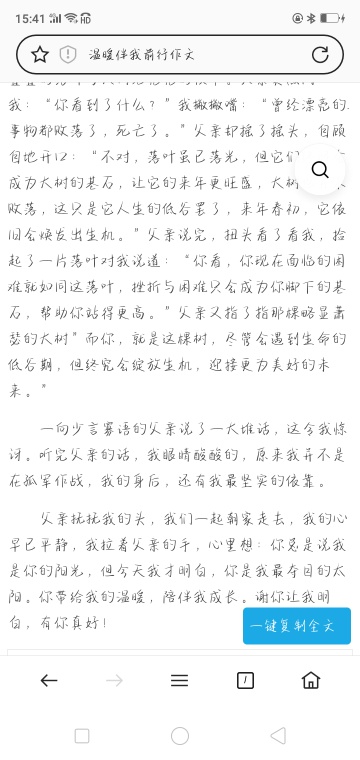 15:41
温暖伴我前行作文
我：“你看到了什么？”我撇撇嘴：“曾经漂亮的
事物都败落了，死亡了。”父亲却摇了摇头，自顾
自地开口：“不对，落叶虽已落光，但它们
成为大树的基石，让它的来年更旺盛，大树
败落，这只是它人生的低谷罢了，来年春初，它依
旧会焕发出生机。”父亲说完，扭头看了看我，拾
起了一片落叶对我说道：“你看，你现在面临的困
难就如同这落叶，挫折与困难只会成为你脚下的基
石，帮助你站得更高。”父亲又指了指那棵略显萧
瑟的大树”而你，就是这棵树，尽管会遇到生命的
低谷期，但终究会绽放生机，迎接更为美好的未
来。”
一向少言寡语的父亲说了一大堆话，这令我惊
讶。听完父亲的话，我眼睛酸酸的，原来我并不是
在孤军作战，我的身后，还有我最坚实的依靠。
父亲抚抚我的头，我们一起朝家走去，我的心
早已平静，我拉着父亲的手，心里想：你总是说我
是你的阳光，但今天我才明白，你是我最夺目的太
阳。你带给我的温暖，陪伴我成长。谢你让我明
白，有你真好！
一键复制全文